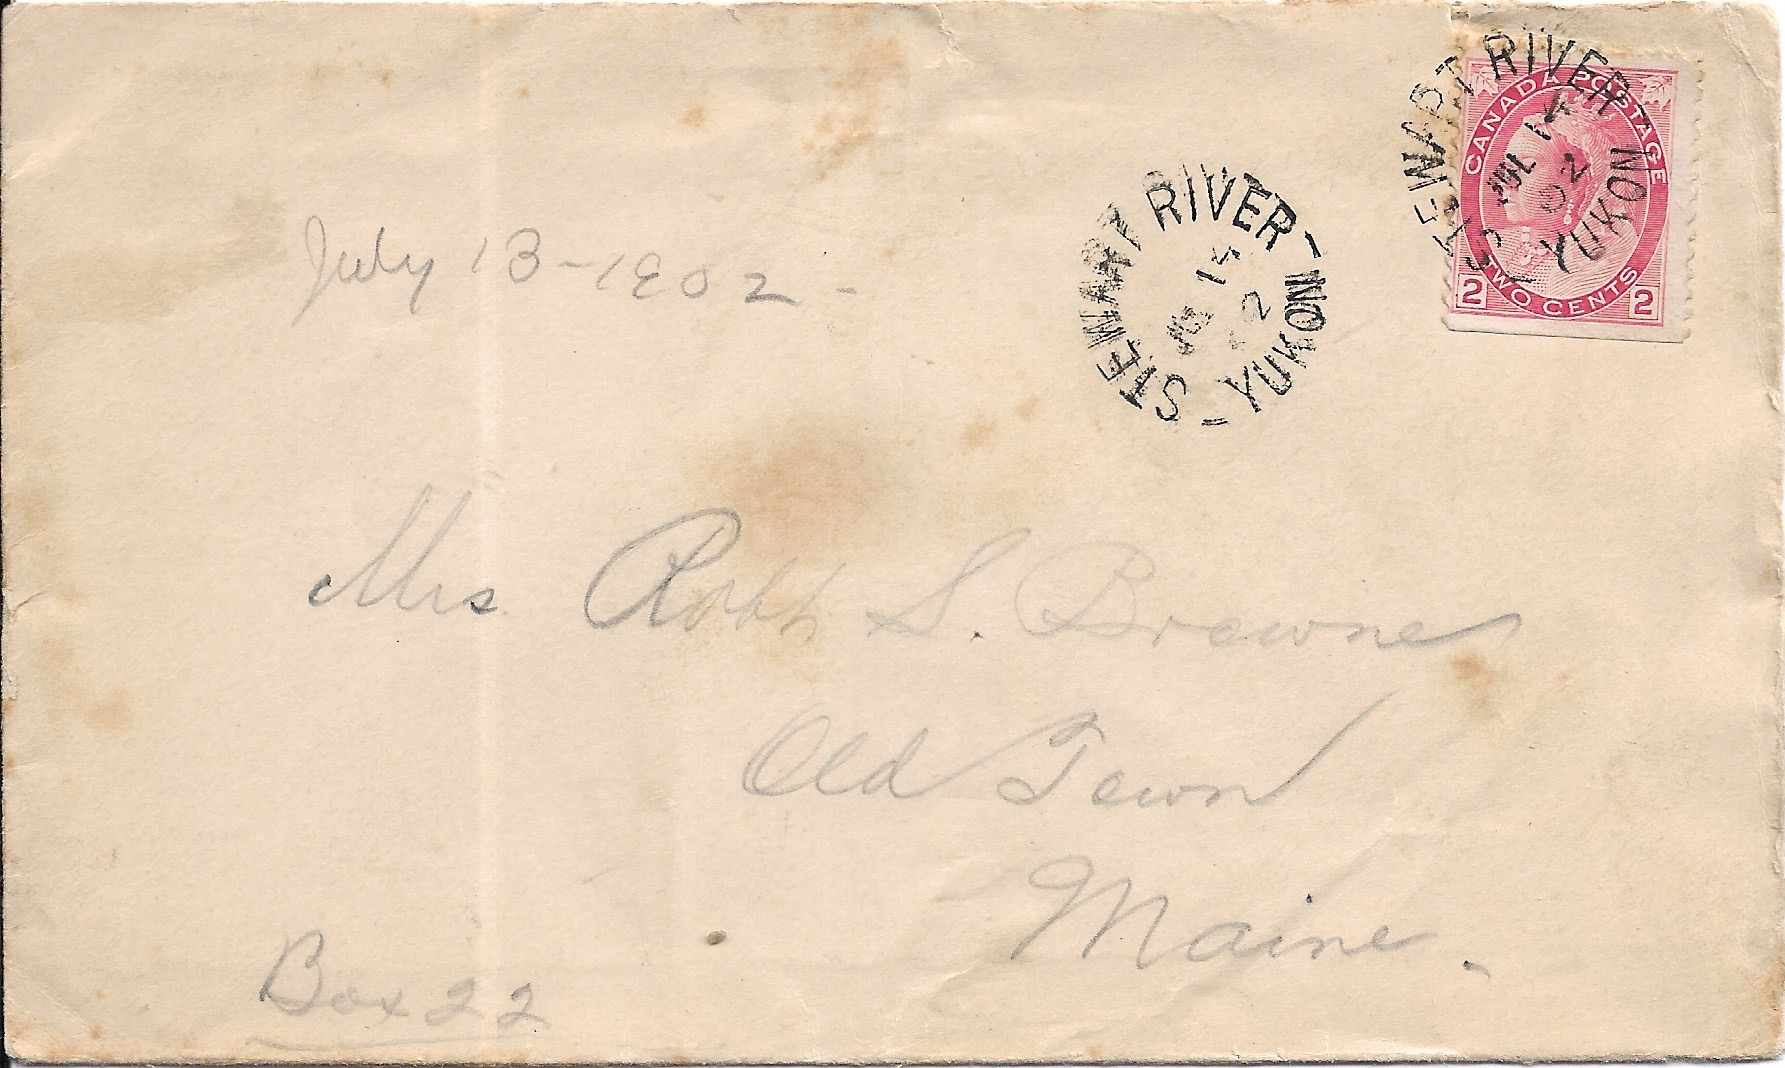 STEWART RIVER - YUKON -
JUL 14
02
CANADA POSTAGE
TWO CENTS
2 2
STEWART RIVER - YUKON -
JUL 14
2
July 13 - 1902 -
Mrs Robt S. Browne
Old Town
Maine.
Box 22